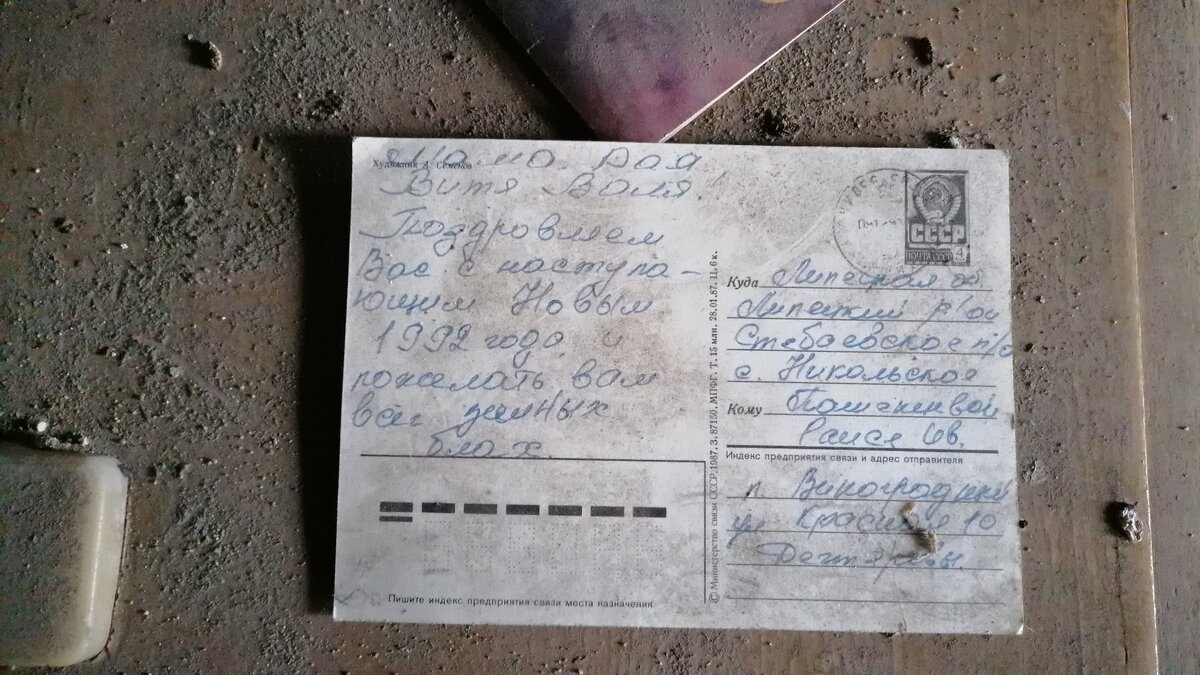 Художник А. Семенов
Мама Рая
Витя Валя!
Поздровляем
Вас с наступа-
ющим Новым
1992 года и
пожелать вам
всег земных
благ.
Пишите индекс предприятия связи места назначения
© Министерство связи СССР, 1987. З. 87150. МПФГ. Т. 15 млн. 28.01.87. Ц. 6 к.
СССР
ПОЧТА СССР 4
Куда Липецкая об
Липецкий р/он
Стебаевское п/о
с. Никольское
Кому
Раисе Ив.
Индекс предприятия связи и адрес отправителя
п.
ул Красная 10